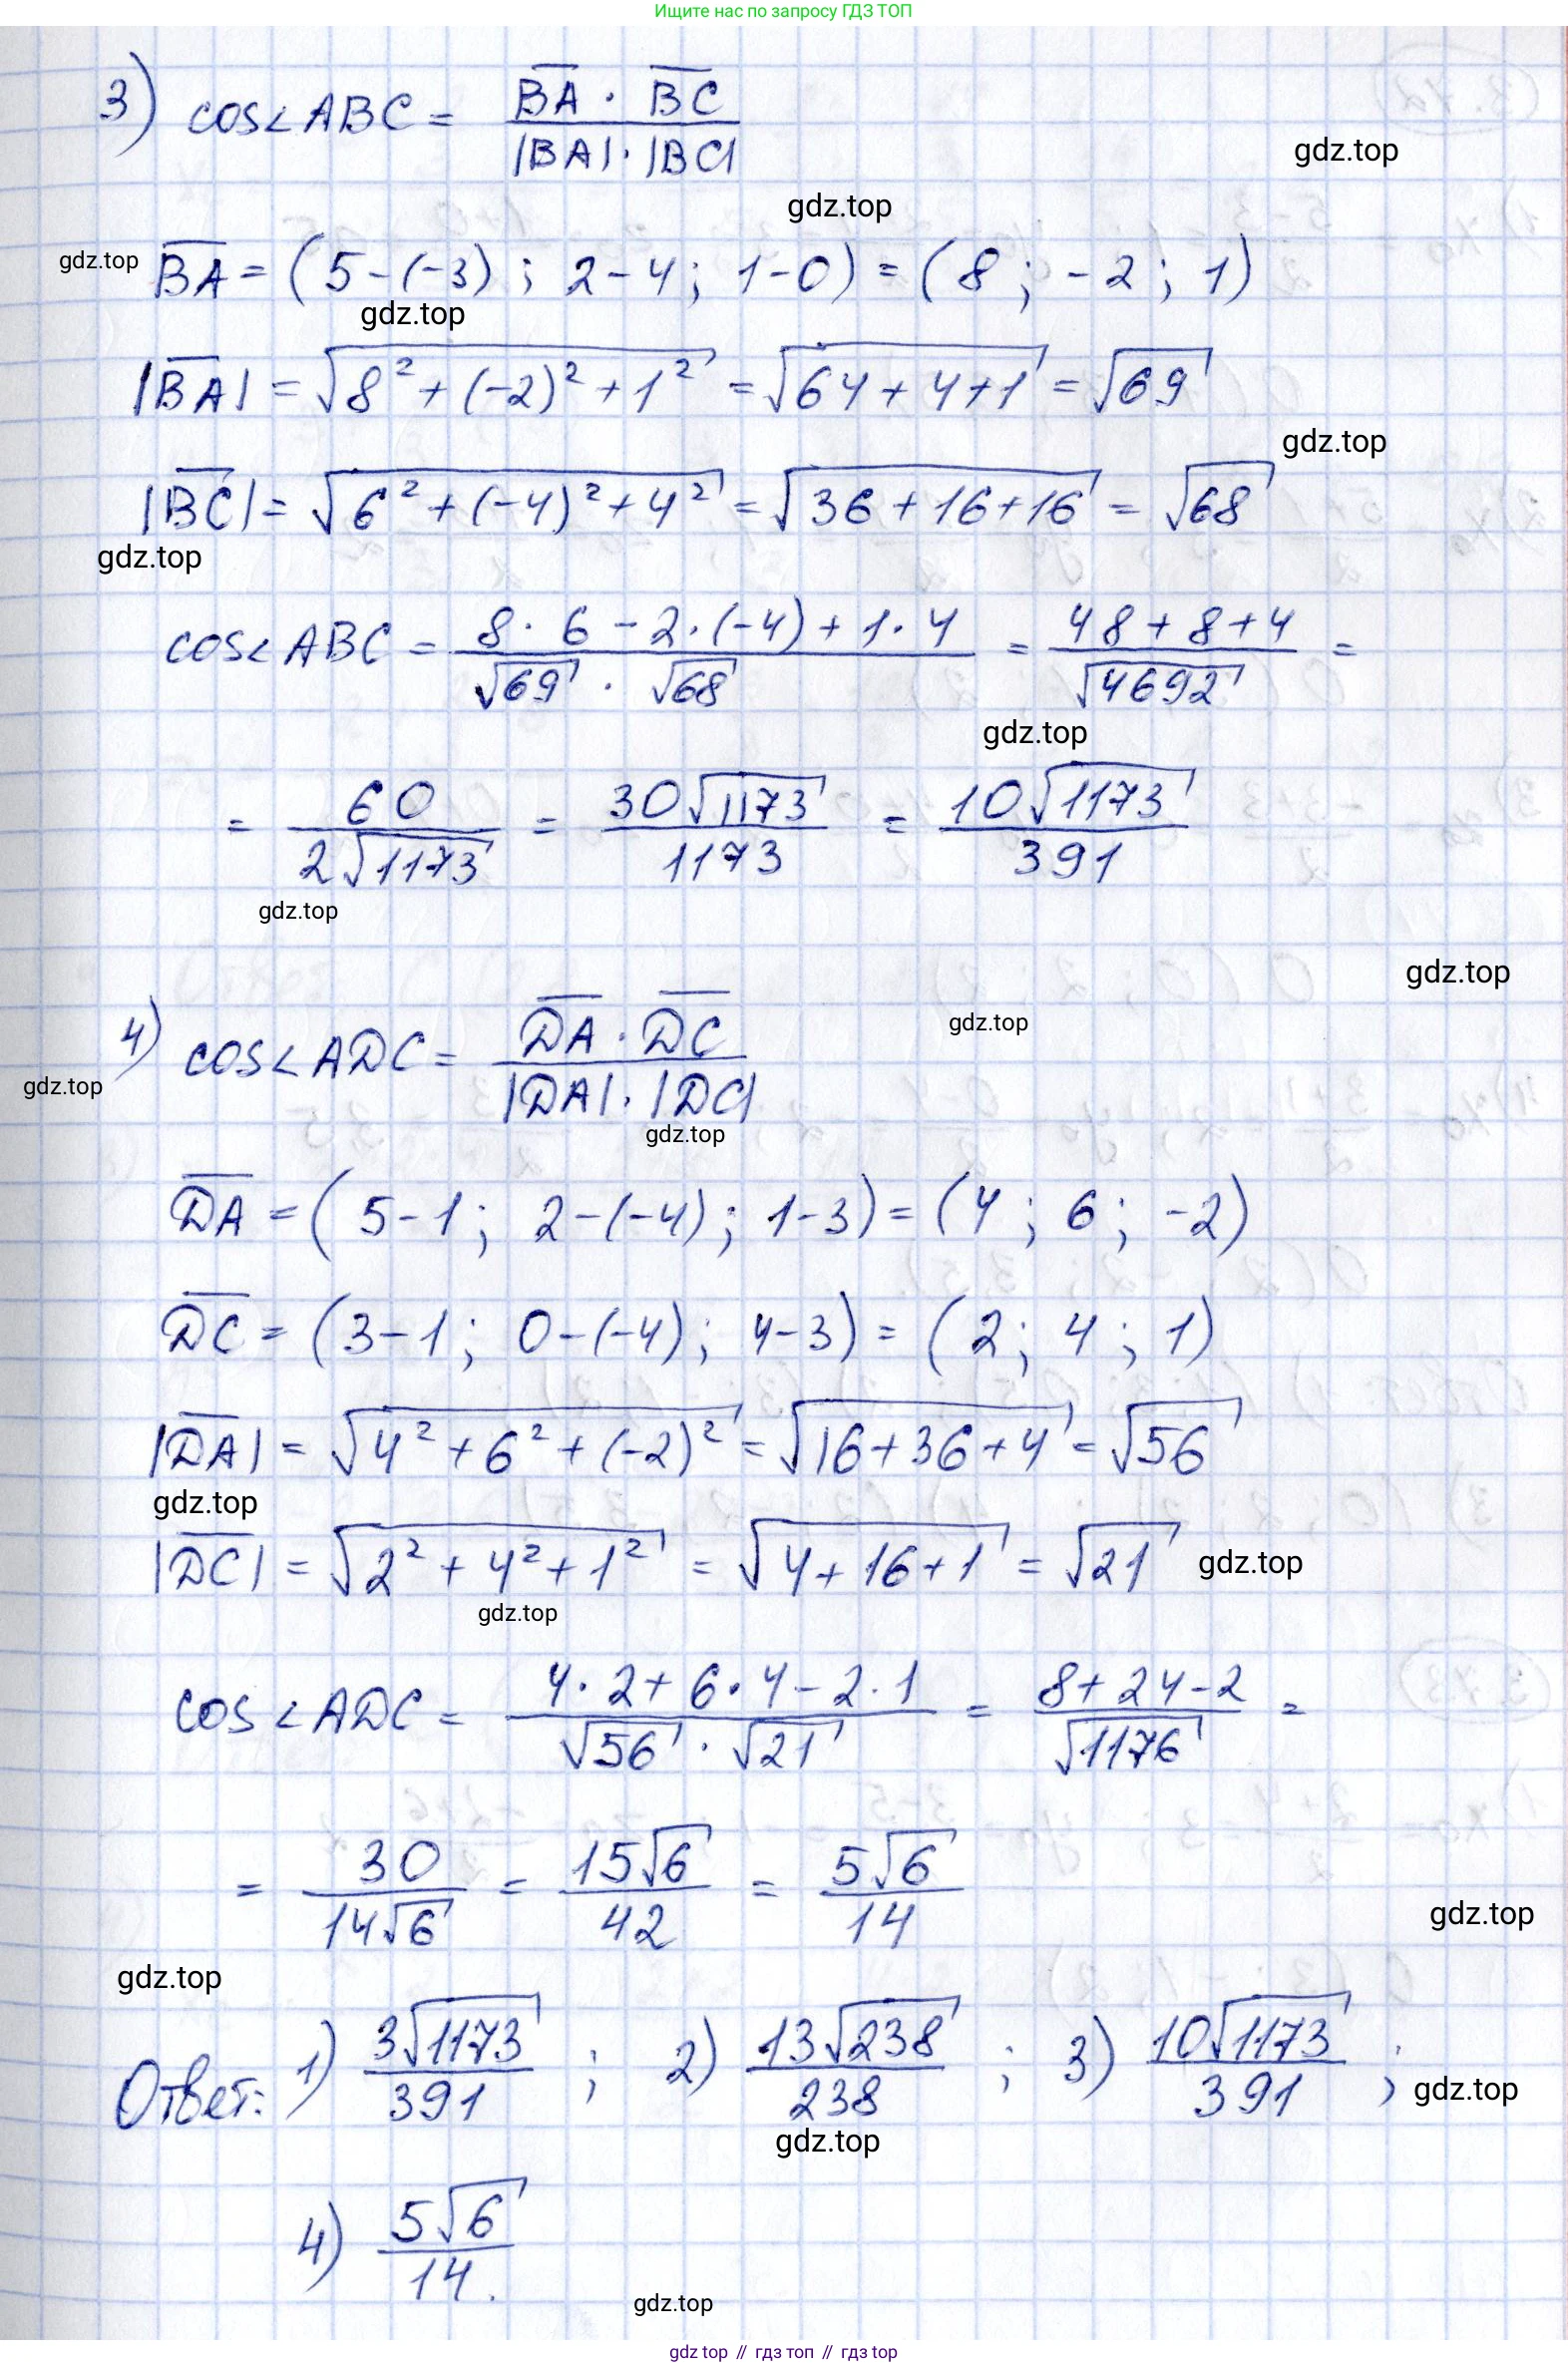 Ищите нас по запросу ГДЗ ТОП
3) cos∠ABC = (BA · BC) / (|BA| · |BC|)
gdz.top
gdz.top
gdz.top
BA = (5-(-3); 2-4; 1-0) = (8; -2; 1)
gdz.top
|BA| = √(8² + (-2)² + 1²) = √(64+4+1) = √69
gdz.top
|BC| = √(6² + (-4)² + 4²) = √(36+16+16) = √68
gdz.top
cos∠ABC = (8·6 - 2·(-4) + 1·4) / (√69 · √68) = (48+8+4) / √4692 =
gdz.top
= 60 / (2√1173) = 30√1173 / 1173 = 10√1173 / 391
gdz.top
gdz.top
4) cos∠ADC = (DA · DC) / (|DA| · |DC|)
gdz.top
gdz.top
gdz.top
DA = (5-1; 2-(-4); 1-3) = (4; 6; -2)
DC = (3-1; 0-(-4); 4-3) = (2; 4; 1)
|DA| = √(4² + 6² + (-2)²) = √(16+36+4) = √56
gdz.top
|DC| = √(2² + 4² + 1²) = √(4+16+1) = √21
gdz.top
gdz.top
cos∠ADC = (4·2 + 6·4 - 2·1) / (√56 · √21) = (8+24-2) / √1176 =
= 30 / (14√6) = 15√6 / 42 = 5√6 / 14
gdz.top
gdz.top
Ответ: 1) 3√1173 / 391 ; 2) 13√238 / 238 ; 3) 10√1173 / 391 ;
gdz.top
gdz.top
4) 5√6 / 14.
gdz.top
gdz top // гдз топ // gdz top